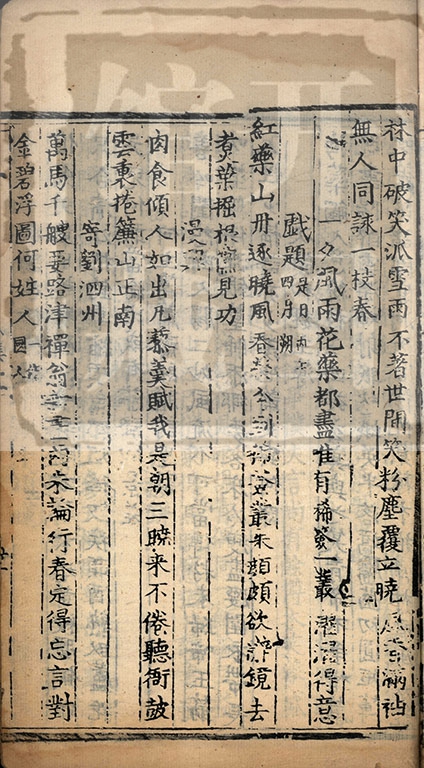 林中破笑派雪雨不著世間笑粉塵覆立曉風香滿袖
無人同詠一枝春
一夕風雨花藥都盡惟有稀薟一叢濯濯得意
戲題是日四月朔
紅藥山丹逐曉風春榮分到稀薟叢朱顏頗欲辭鏡去
煮葉掘根儻見功
肉食傾人如出凡藜羹賦我是朝三曉來不倦聽衙鼓
雲裏捲簾山正南
寄劉泗州
萬馬千艘要路津禪翁未論行春定得忘言對
金碧浮圖何姓人一作國人